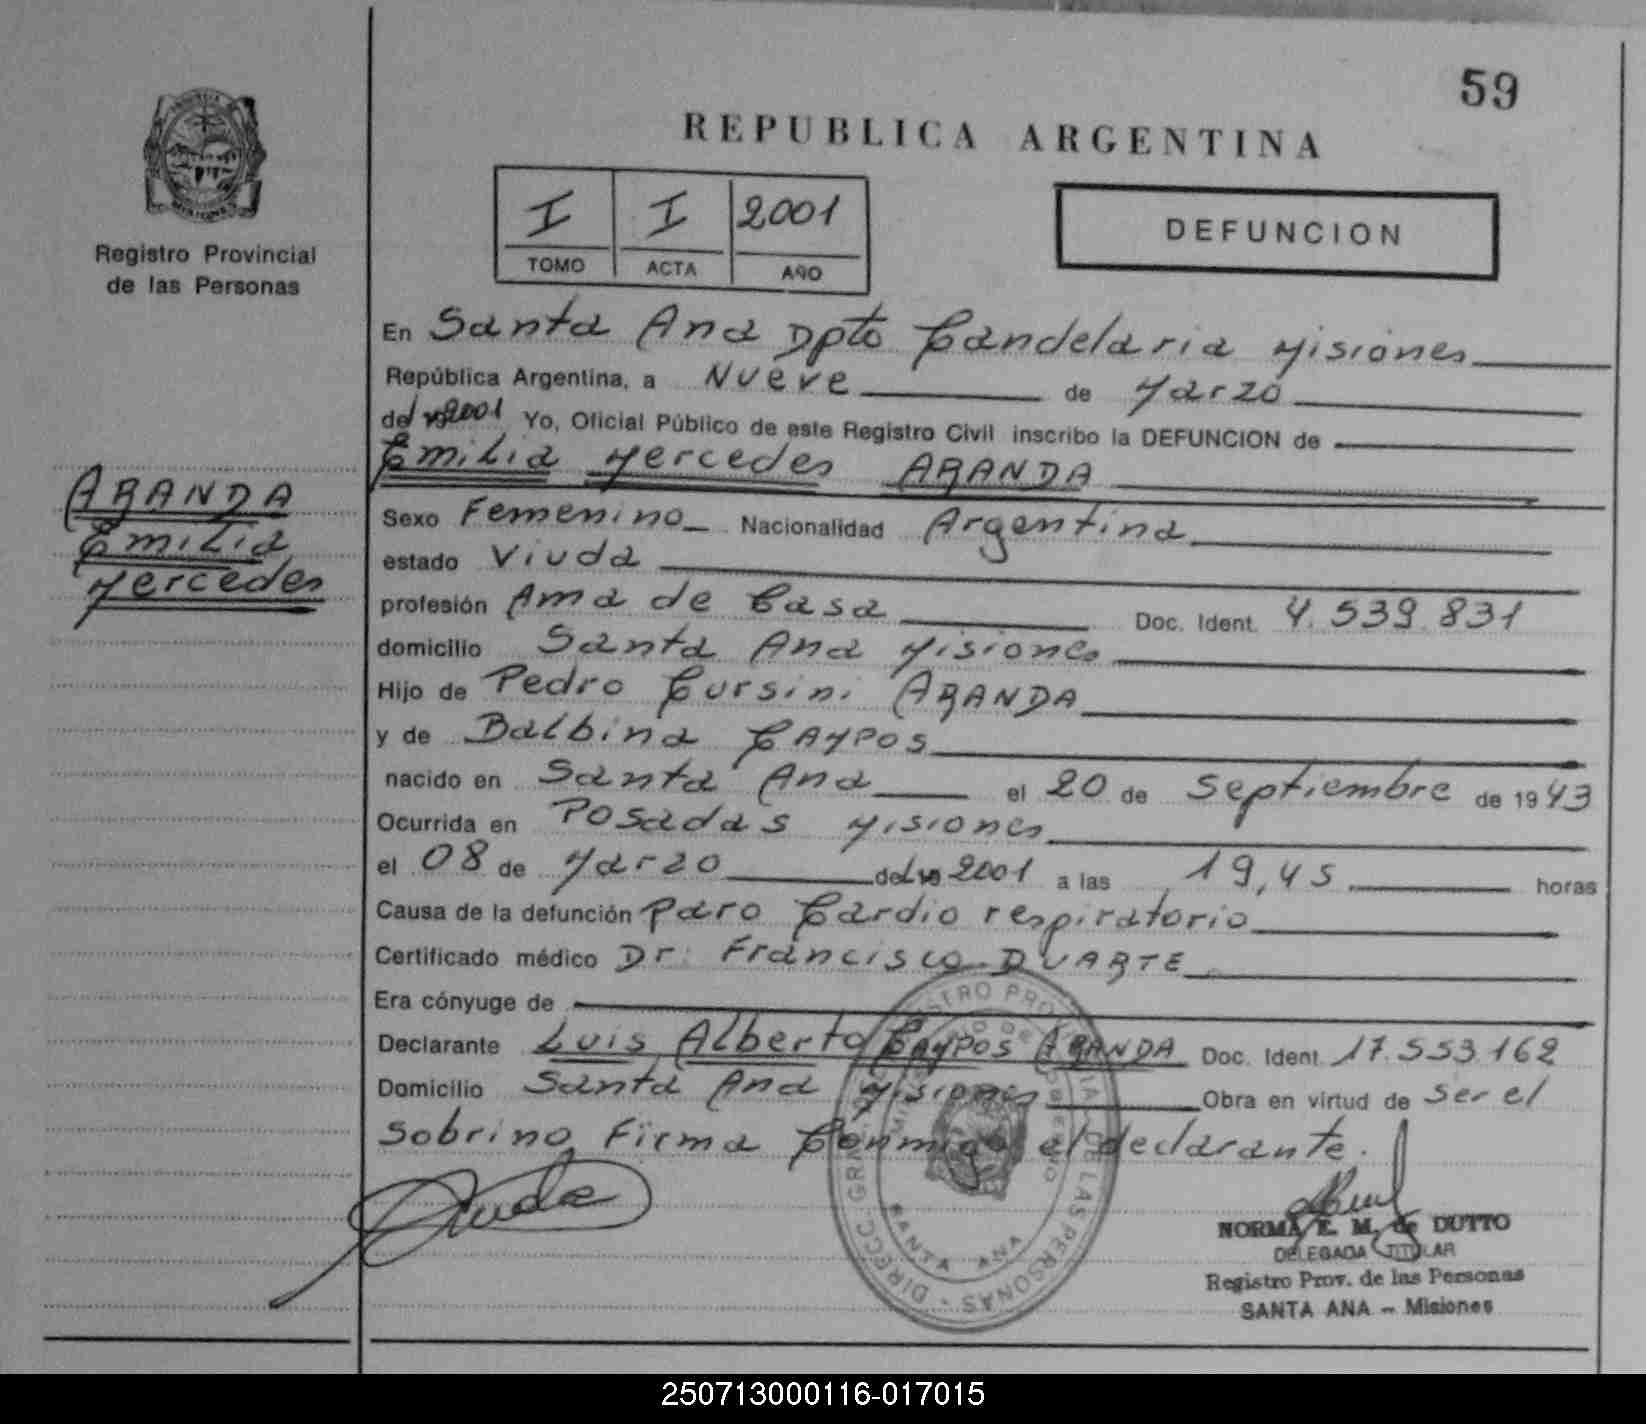 59
REPUBLICA ARGENTINA
I I 2001
TOMO ACTA AÑO
DEFUNCION
Registro Provincial
de las Personas
En Santa Ana Dpto Candelaria Misiones
República Argentina, a Nueve de Marzo
del 2001 Yo, Oficial Público de este Registro Civil inscribo la DEFUNCION de
Emilia Mercedes ARANDA
ARANDA
Emilia
Mercedes
Sexo Femenino Nacionalidad Argentina
estado Viuda
profesión Ama de Casa Doc. Ident. 4.539.831
domicilio Santa Ana Misiones
Hijo de Pedro Cursini ARANDA
y de Balbina CAMPOS
nacido en Santa Ana el 20 de Septiembre de 1943
Ocurrida en Posadas Misiones
el 08 de Marzo del 2001 a las 19,45 horas
Causa de la defunción Paro Cardio respiratorio
Certificado médico Dr: Francisco DUARTE
Era cónyuge de
Declarante Luis Alberto CAMPOS ARANDA Doc. Ident. 17.553.162
Domicilio Santa Ana Misiones Obra en virtud de Ser el
Sobrino Firma Conmigo el declarante.
NORMA E. M. de DUTTO
DELEGADA TITULAR
Registro Prov. de las Personas
SANTA ANA - Misiones
SANTA ANA
250713000116-017015